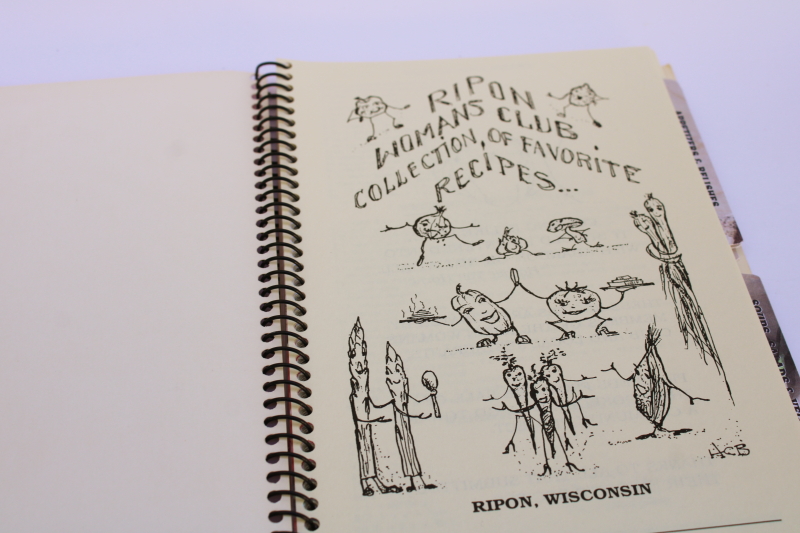 RIPON
WOMANS CLUB
COLLECTION, OF FAVORITE
RECIPES...
HCB
RIPON, WISCONSIN
APPETIZERS & RELISHES